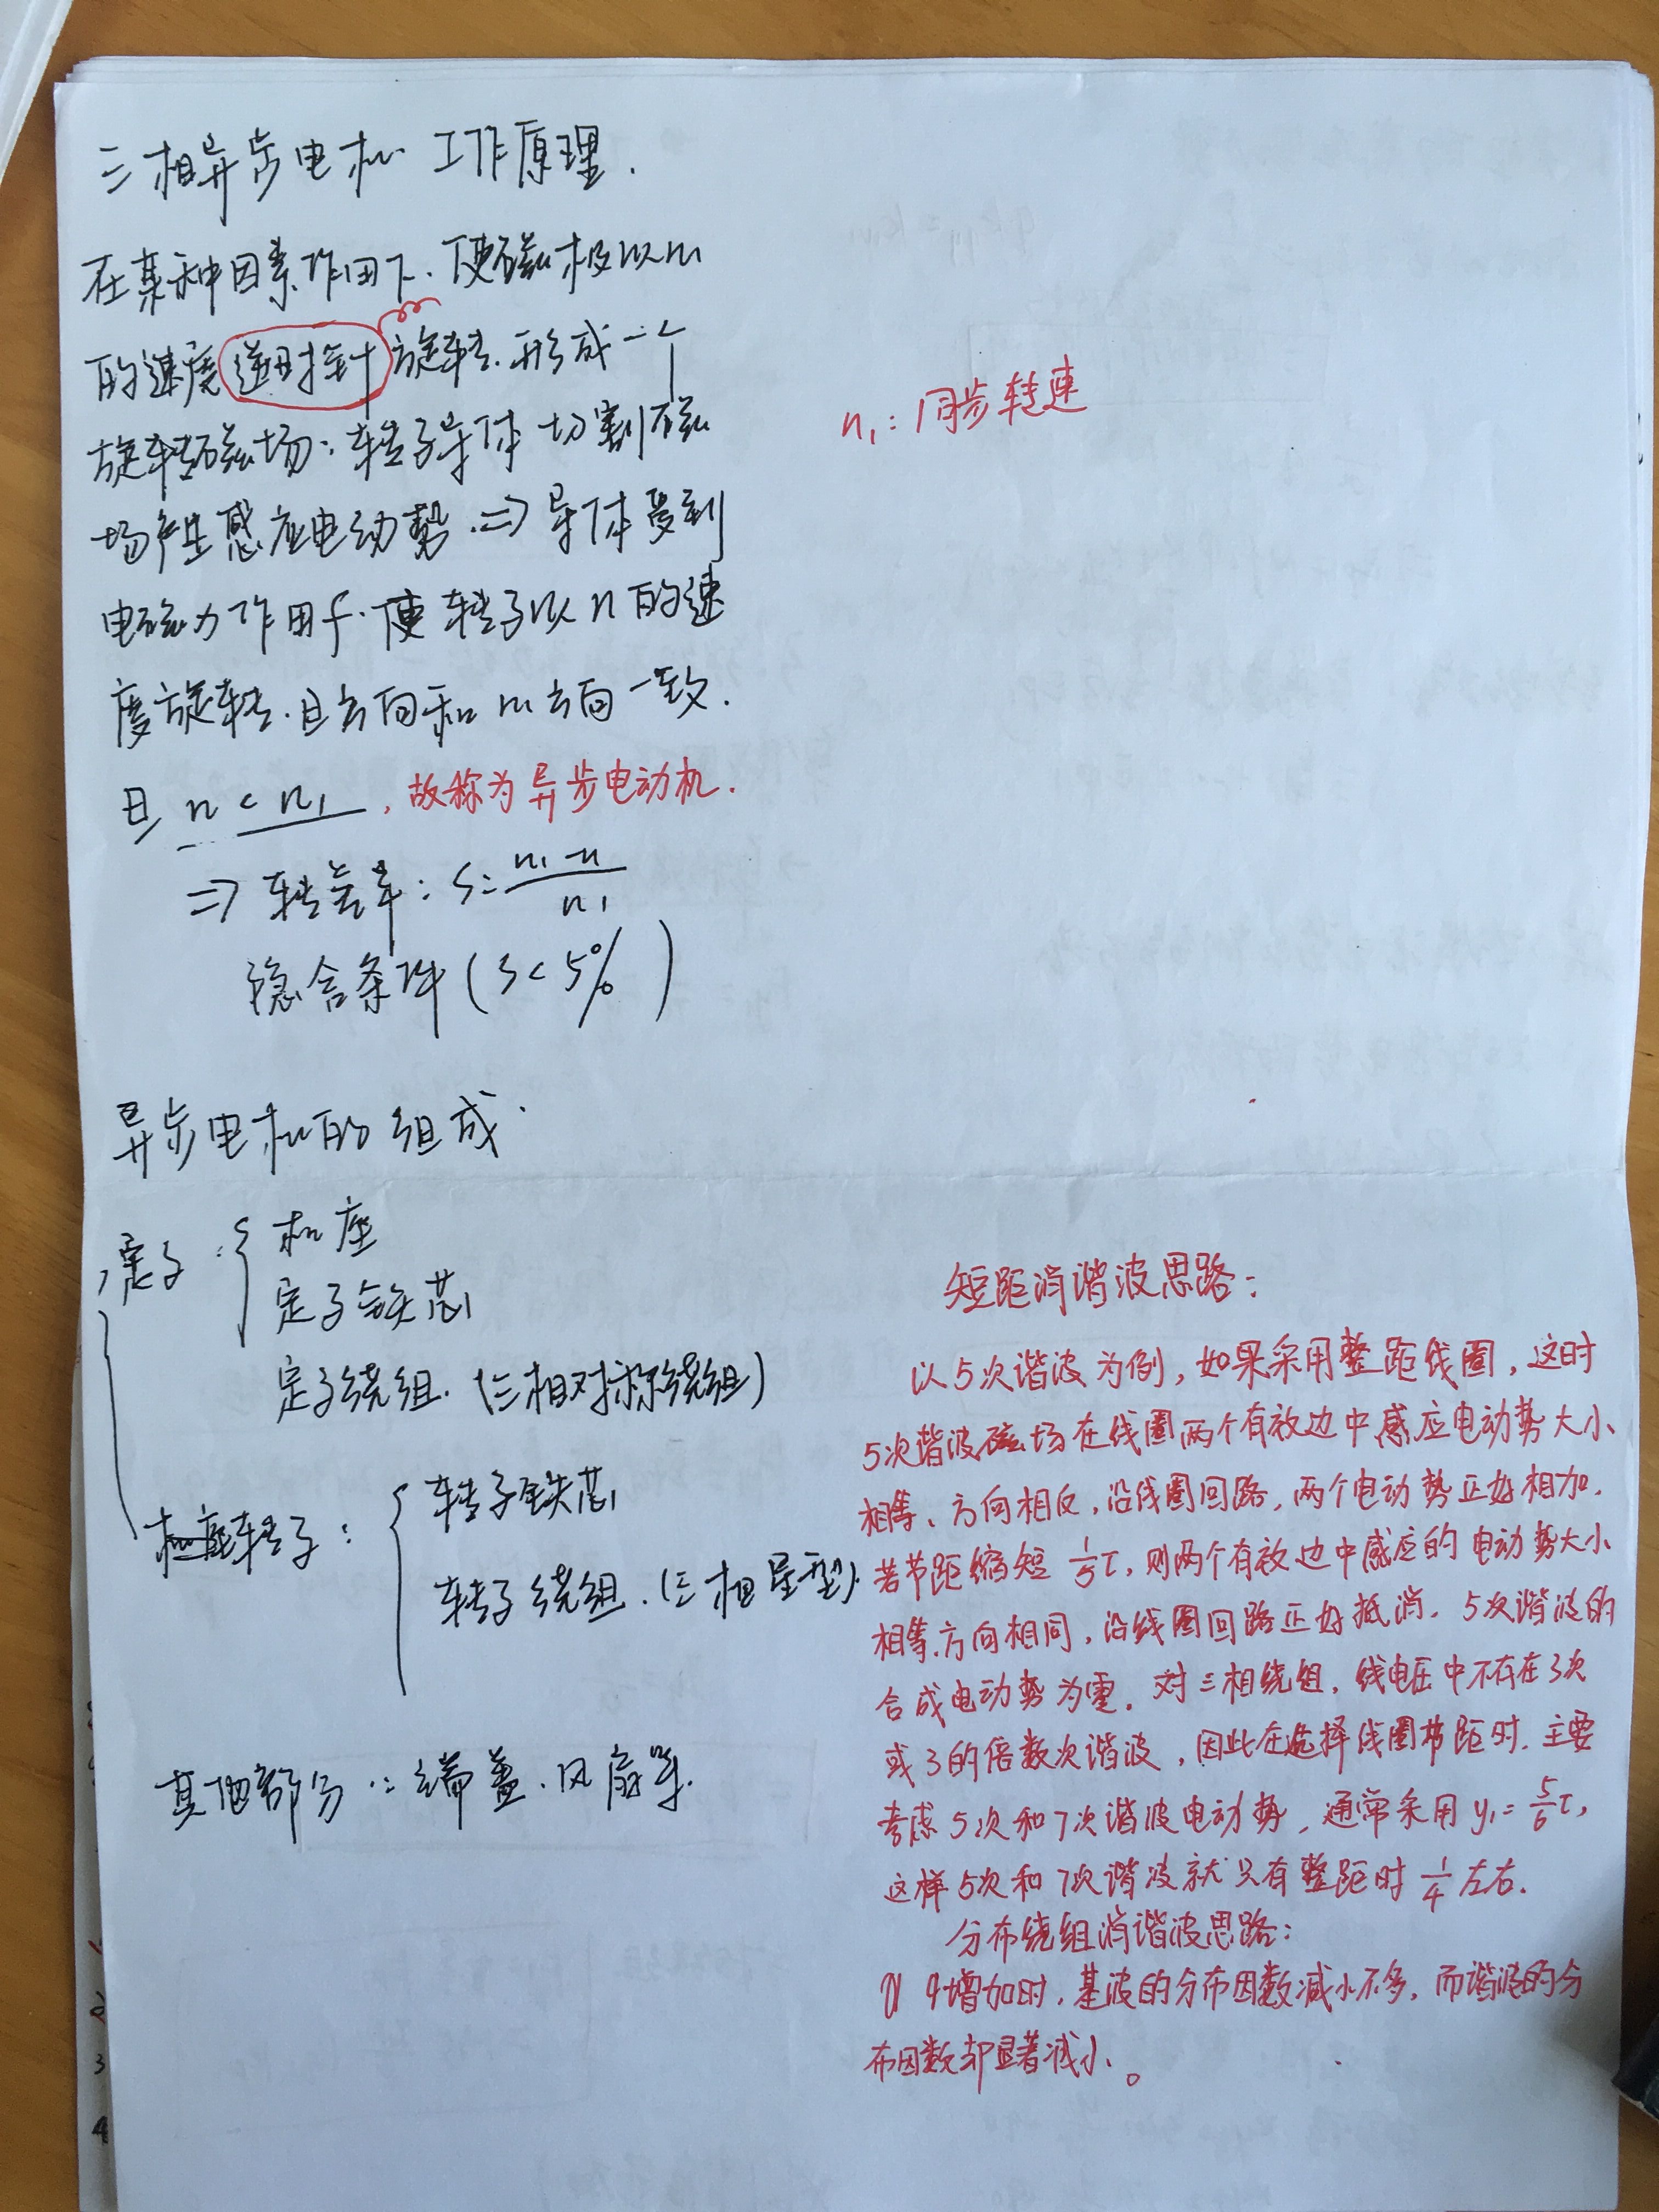 三相异步电机工作原理.
在某种因素作用下.使磁极以n₁
的速度逆时针旋转.形成一个
旋转磁场:转子导体切割磁
场产生感应电动势.⇒导体受到
电磁力作用于.使转子以n的速
度旋转.且方向和n₁方向一致.
且 n < n₁, 故称为异步电动机.
⇒ 转差率: s = (n₁-n)/n₁
隐含条件(s<5%)
n₁:同步转速
异步电机的组成.
定子: 机座
定子铁芯
定子绕组.(三相对称绕组)
机座转子: 转子铁芯
转子绕组.(三相星型).
其他部分: 端盖.风扇等.
短距消谐波思路:
以5次谐波为例,如果采用整距线圈,这时
5次谐波磁场在线圈两个有效边中感应电动势大小
相等、方向相反,沿线圈回路,两个电动势正好相加.
若节距缩短 1/5 τ,则两个有效边中感应的电动势大小
相等.方向相同,沿线圈回路正好抵消.5次谐波的
合成电动势为零.对三相绕组,线电压中不存在3次
或3的倍数次谐波,因此在选择线圈节距时.主要
考虑5次和7次谐波电动势,通常采用y₁=5/6 τ,
这样5次和7次谐波就只有整距时1/4左右.
分布绕组消谐波思路:
q增加时,基波的分布因数减小不多,而谐波的分
布因数却显著减小。
3
4